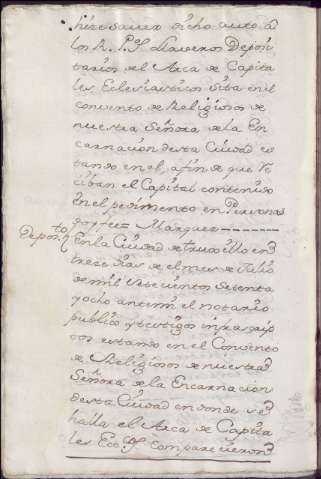 hize saver dicho auto a
los R. P.es Llaveros Depon
tarios del Arca de Capita
les Eclesiasticos sita en il
convento de Religiosos de
nuestra Señora de la En
carnación desta Ciudad es
tando en el, afin de que re
ciban el Capital contenido
en el pedimento en Personas
doy fee = Marquez
Depon.to
En la Ciudad de truxillo en
trece dias de el mes de Julio
de mil sete cientos setenta
y ocho antemi el notario
publico y testigos infrascrip
tos estando en el Convento
de Religiosos de nuestra
Señora de la Encarnacion
desta Ciudad en donde se
halla el Arca de Capita
les Ecc.os comparecieron